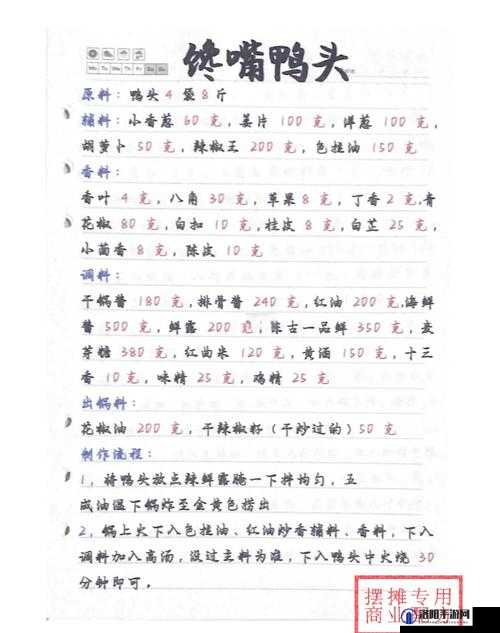 馋嘴鸭头
Mo Tu We Th Fr Sa Su
原料：鸭头4袋8斤
辅料：小香葱60克，姜片100克，洋葱100克，
胡萝卜50克，辣椒王200克，色拉油150克
香料：
香叶4克，八角30克，草果8克，丁香2克，青
花椒80克，白扣10克，桂皮8克，白芷25克，
小茴香8克，陈皮10克
调料：
干锅酱180克，排骨酱240克，红油200克，海鲜
酱500克，鲜露200克，陈古一品鲜350克，麦
芽糖380克，红曲米120克，黄酒150克，十三
香10克，味精25克，鸡精25克
出锅料：
花椒油200克，干辣椒籽（干炒过的）50克
制作流程：
1，将鸭头放点辣鲜露腌一下拌均匀，五
成油温下锅炸至金黄色捞出
2，锅上火下入色拉油、红油炒香辅料、香料，下入
调料加入高汤，没过主料为准，下入鸭头中火烧30
分钟即可。
摆摊专用
商业配方
洛阳手游网